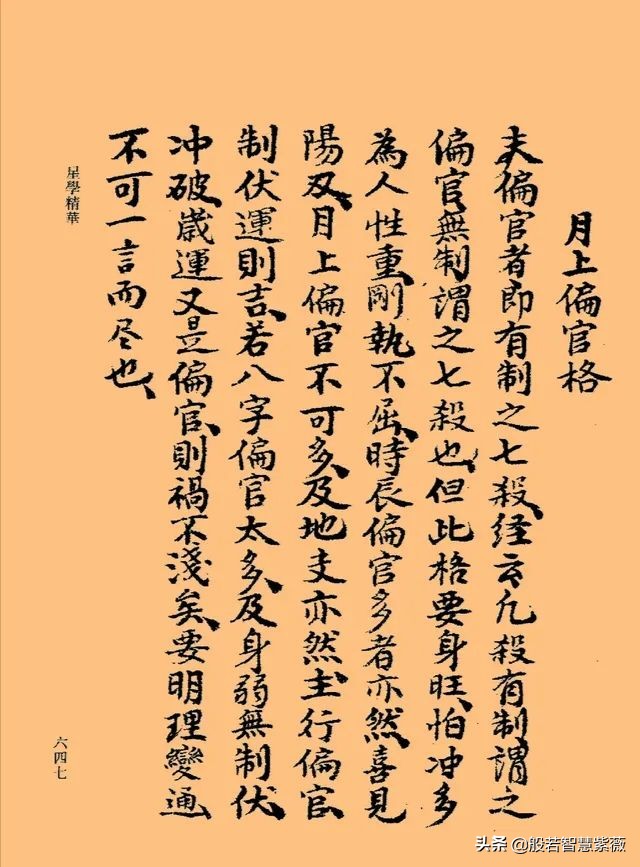 月上偏官格
夫偏官者即有制之七殺経云凡殺有制謂之
偏官無制謂之七殺也但此格要身旺怕冲多
為人性重剛執不屈時辰偏官多者亦然喜見
陽刃月上偏官不可多及地支亦然主行偏官
制伏運則吉若八字偏官太多及身弱無制伏
冲破歲運又是偏官則禍不淺矣要明理變通
不可一言而尽也
星學精華
六四七
头条 @般若智慧紫薇